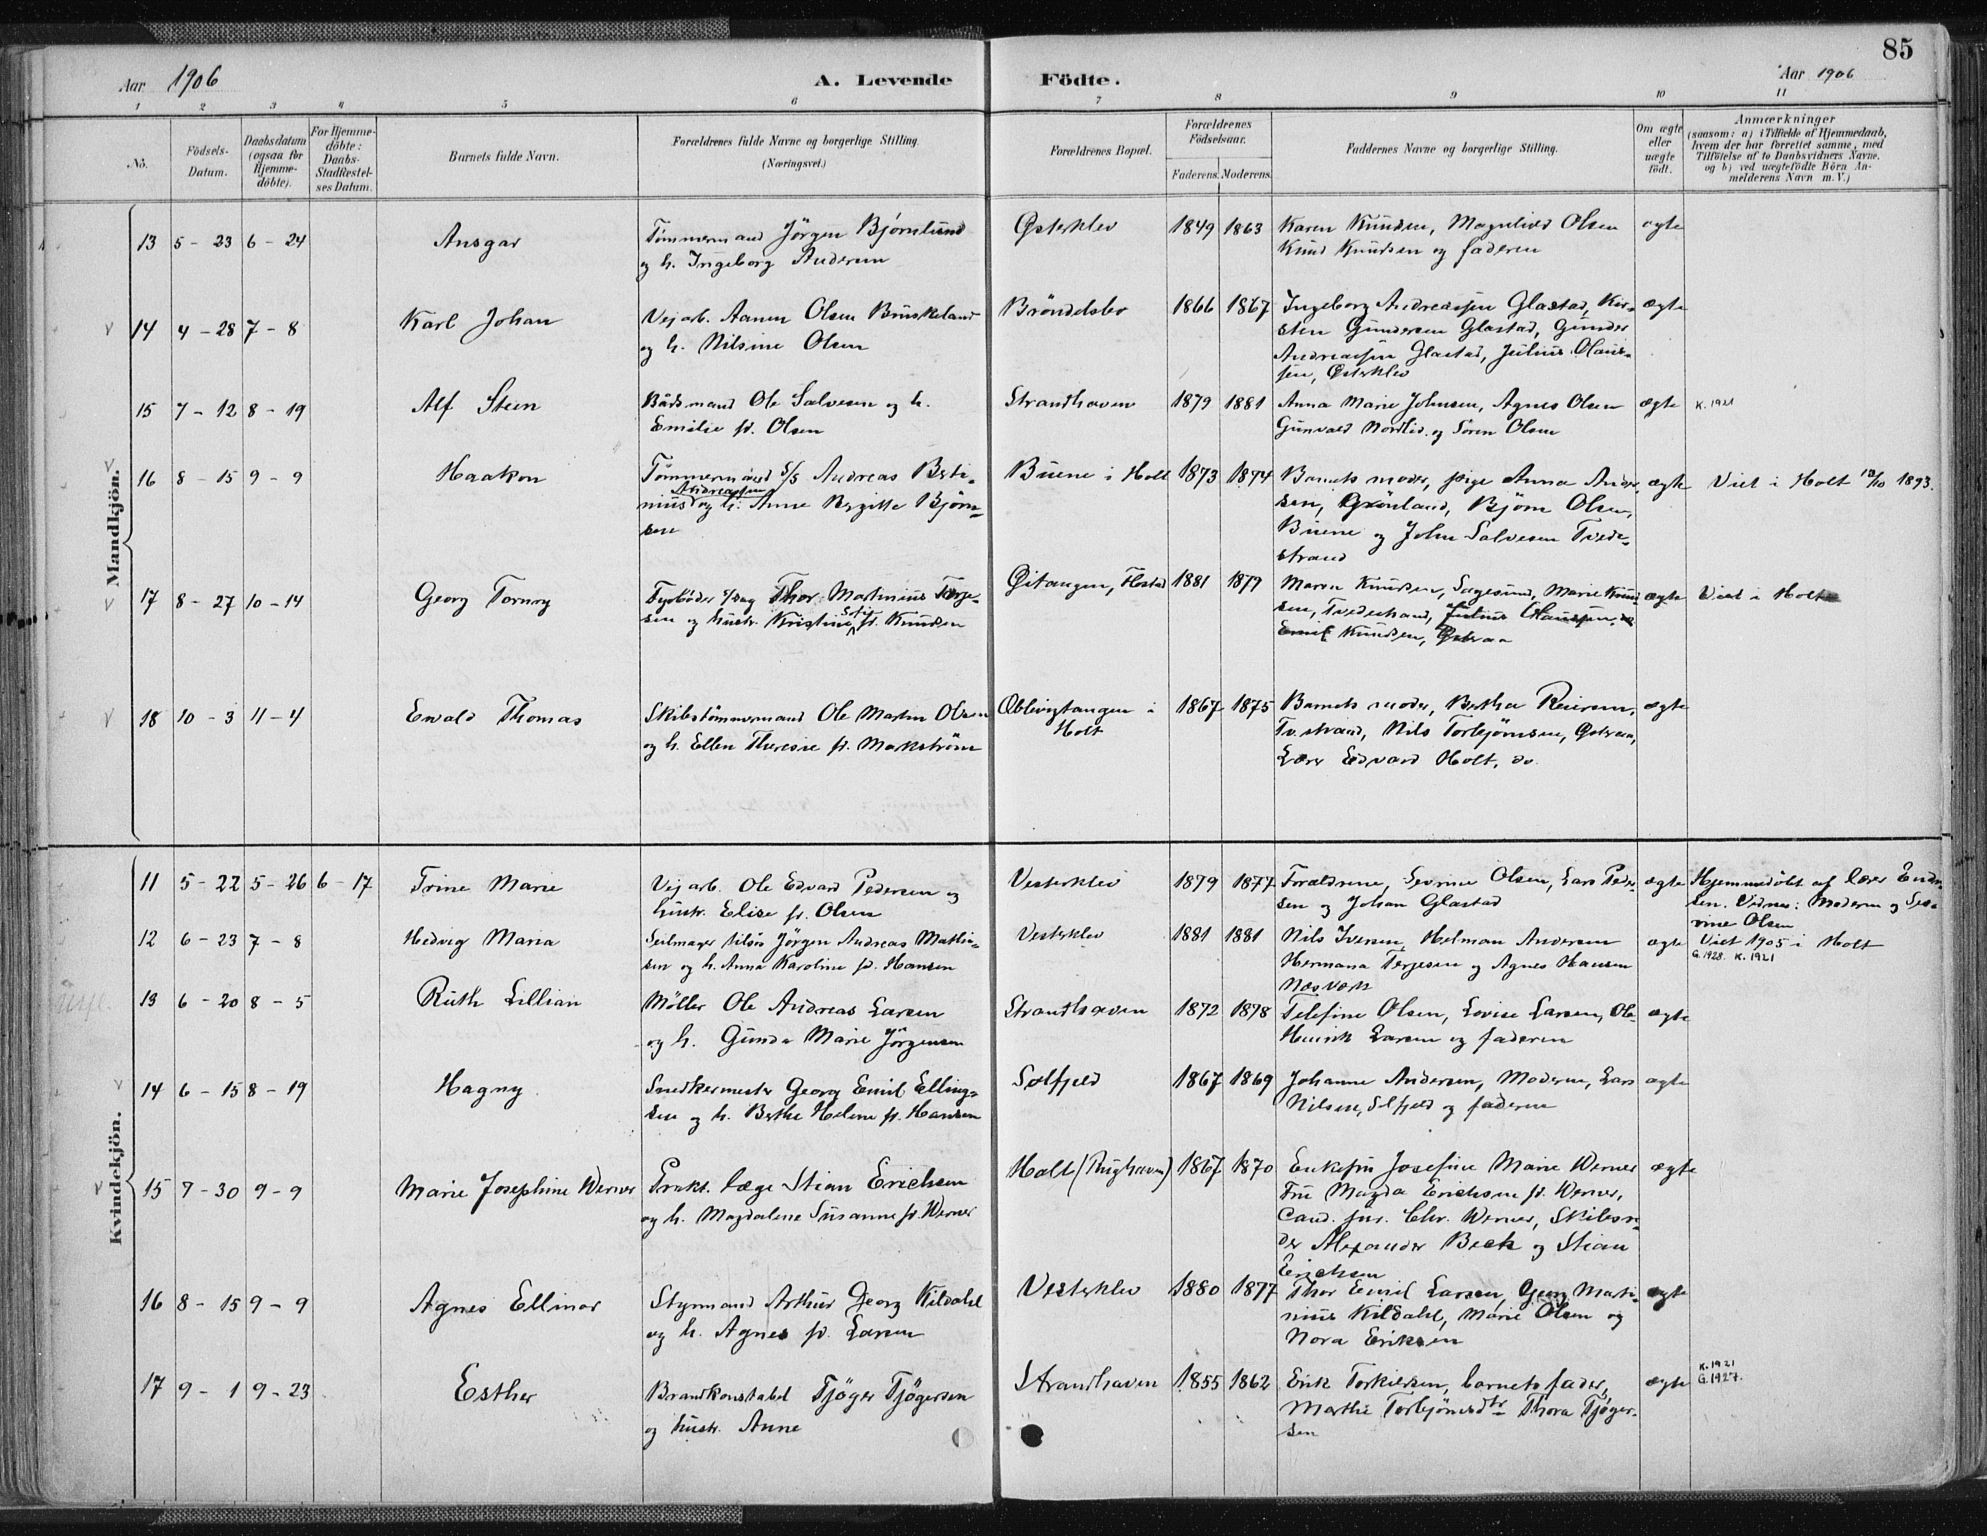 85
Aar 1906
A. Levende Födte.
Aar 1906
1 2 3 4 5 6 7 8 9 10 11
No.
Födsels-Datum.
Daabsdatum (ogsaa for Hjemme-döbte).
For Hjemme-döbte: Daabs-Stadfæstel-ses Datum.
Barnets fulde Navn.
Forældrenes fulde Navne og borgerlige Stilling.
(Næringsvei.)
Forældrenes Bopæl.
Forældrenes Födselsaar.
Faderens. Moderens.
Faddernes Navne og borgerlige Stilling.
Om ægte eller uægte födt.
Anmærkninger
(saasom: a) i Tilfælde af Hjemmedaab,
hvem der har forrettet samme, med
Tilföielse af to Daabsvidners Navne,
og b) ved uægtefödte Börn An-
melderens Navn m. V.)
Mandkjön.
13 5-23 6-24 Ansgar
Tømmermand Jörgen Bjørnlund
og h. Ingeborg Andersen
Østerklev 1849 1863
Karen Knudsen, Magnhild Olsen
Knud Knudsen og faderen
ægte
14 4-28 7-8 Karl Johan
Vejarb. Aanen Olsen Bruskeland
og h. Nilsine Olsen
Bröndelsbo 1866 1867
Ingeborg Andreassen Glastad, Kir-
sten Gundersen Glastad, Gunder
Andreassen Glastad, Julius Claus-
sen, Østerklev
ægte
15 7-12 8-19 Alf Steen
Bådsmand Ole Salvesen og h.
Emilie f. Olsen
Strandhaven 1879 1881
Anna Marie Johnsen, Agnes Olsen
Gunvald Nordlid og Sören Olsen
ægte K. 1921
16 8-15 9-9 Haakon
Tømmermand S/S Andreas Berti-
Andreassen
nius og h. Anne Birgitte Bjørn-
sen
Buene i Holt 1873 1874
Barnets moder, pige Anna Ander-
sen, Grönland, Björn Olsen,
Buene og John Salvesen Tvede-
strand
ægte Viet i Holt 13/10 1893.
17 8-27 10-14 Georg Tornøy
Fyrbøder Thor Martinius Terje-
sen og hustr. Kristine f. Knudsen
Øitangen, Flostad 1881 1879
Maren Knudsen, Sagesund, Marie Knud-
sen, Tvedestrand, Julius Claussen,
Emil Knudsen, Østeraa
ægte Viet i Holt
18 10-3 11-4 Ewald Thomas
Skibstømmermand Ole Martin Olsen
og h. Ellen Therese f. Markström
Øblevigtangen i
Holt
1867 1875
Barnets moder, Bertha Reiersen,
Tv.strand, Nils Torbjørnsen, Østeraa,
Lærer Edvard Holt, do.
ægte
Kvindekjön.
11 5-22 5-26 6-17 Trine Marie
Vejarb. Ole Edvard Pedersen og
hustr. Elise f. Olsen
Vesterklev 1879 1877
Forældrene, Severine Olsen, Lars Peder-
sen og Johan Glastad
ægte
Hjemmedöbt af lærer Endre-
sen. Vidner: Moderen og Seve-
rine Olsen
12 6-23 7-8 Hedvig Maria
Seilmager tilsjøs Jörgen Andreas Mathi-
sen og h. Anna Karoline f. Hansen
Vesterklev 1881 1881
Nils Iversen, Helman Andersen
Hermana Terjesen og Agnes Hansen
Næsværk
ægte
Viet 1905 i Holt
G. 1928. K. 1921
13 6-20 8-5 Ruth Lillian
Möller Ole Andreas Larsen
og h. Gunda Marie Jörgensen
Strandhaven 1872 1878
Telefine Olsen, Lovise Larsen, Ole
Henrik Larsen og faderen
ægte
14 6-15 8-19 Hagny
Snedkermester Georg Emil Elling-
sen og h. Berthe Helene f. Hansen
Solfjeld 1867 1869
Johanne Andersen, Moderen, Lars
Nilsen, Solfjeld og faderen
ægte
15 7-30 9-9 Marie Josephine Werner
Prakt. læge Stian Erichsen
og h. Magdalene Susanne f. Werner
Holt (Rughaven) 1867 1870
Enkefru Josefine Marie Werner
Fru Magda Erichsen f. Werner,
Cand. jur. Chr. Werner, Skibsre-
der Alexander Beck og Stian
Erichsen
ægte
16 8-15 9-9 Agnes Ellinor
Styrmand Arthur Georg Kildahl
og h. Agnes f. Larsen
Vesterklev 1880 1877
Thor Emil Larsen, Georg Marti-
nius Kildahl, Marie Olsen og
Nora Eriksen
ægte
17 9-1 9-23 Esther
Brandkonstabel Tjøger Tjøgersen
og hustr. Anne
Strandhaven 1855 1862
Erik Torkildsen, barnets fader,
Marthe Torbjörnsdtr Thora Tjøger-
sen
ægte
K. 1921
G. 1927.